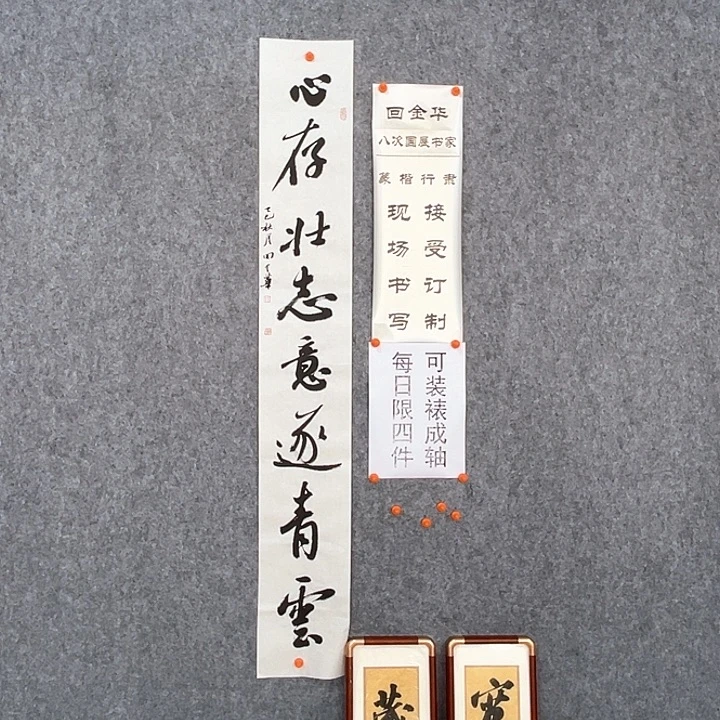 心存壮志意遂青雲
乙巳秋月回金華
回金华
八次国展书家
篆楷行隶
接受订制
现场书写
可装裱成轴
每日限四件
茂
宽